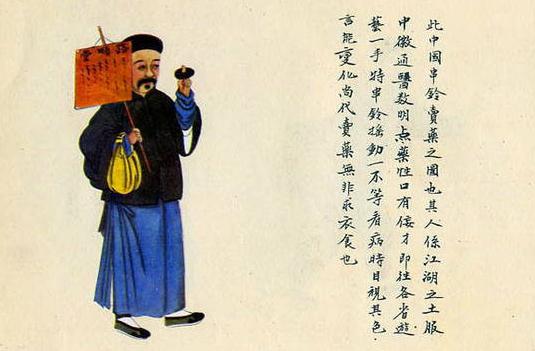 此中國串鈴賣藥之圖也其人係江湖之士服
中微通醫数明点藥性口有佞才即往各省遊
藝一手持串鈴摇動一不等看病時目視其色
言能變化尚代賣藥無非求衣食也